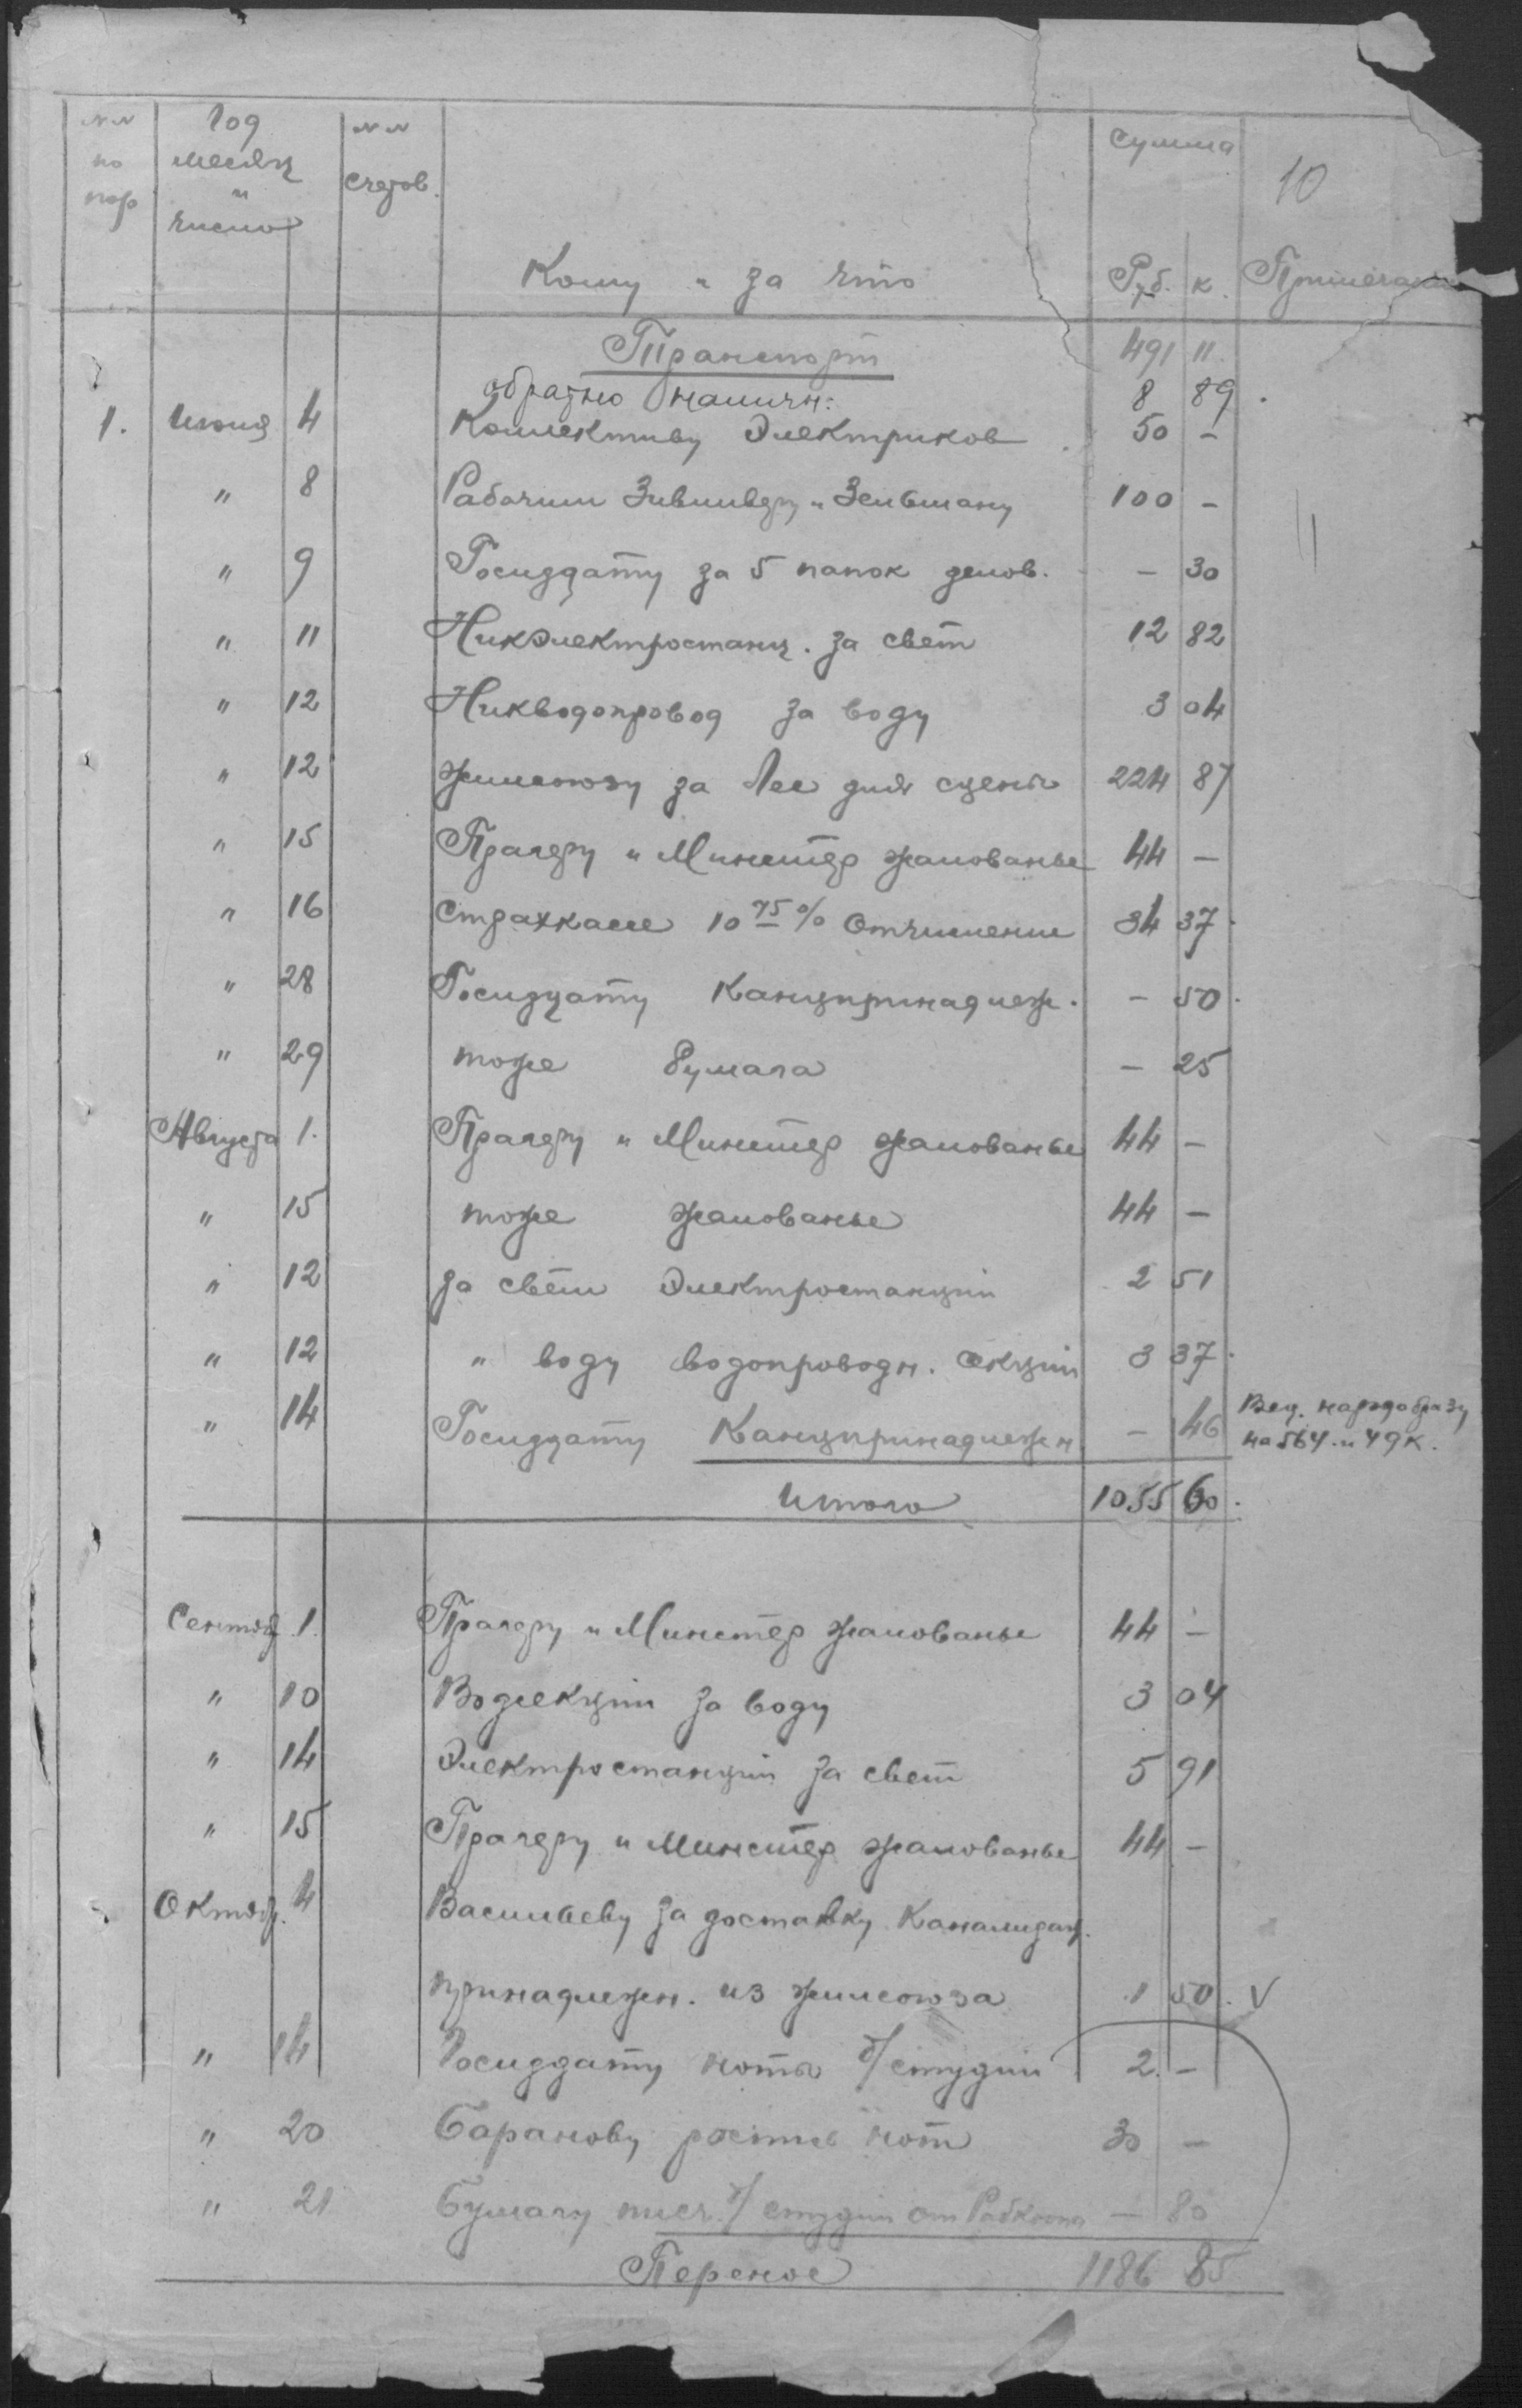 №№ по пор
Год месяц и число
№№ счетов.
Кому и за что
Сумма
Руб. к.
10
Примечание
Транспорт 491 11.
обратно наличн: 8 89.
1. Июля 4 Коллективу Электриков 50 -
" 8 Рабочим и Зельцману 100 -
" 9 Госиздату за 5 папок делов. - 30
" 11 Никэлектростанц. за свет 12 82
" 12 Никводопровод за воду 3 04
" 12 Жилсоюзу за лес для сцены 224 87
" 15 Прагеру и Минстер жалованье 44 -
" 16 Страхкассе 10 75% отчисление 34 37.
" 28 Госиздату Канцпринадлеж. - 50.
" 29 тоже бумага - 25
Августа 1. Прагеру и Минстер жалованье 44 -
" 15 тоже жалованье 44 -
" 12 за свет Электростанции 2 51
" 12 " воду водопроводн. секции 3 37.
" 14 Госиздату Канцпринадлежн - 46
Вед. нарздобразу
на 564 и 49 к.
Итого 1055 60.
Сентяб. 1. Прагеру и Минстер жалованье 44 -
" 10 Водсекции за воду 3 04
" 14 Электростанции за свет 5 91
" 15 Прагеру и Минстер жалованье 44 -
Октяб. 4 Васильеву за доставку Канализац.
принадлежн. из жилсоюза 1 50. V
" 14 Госиздату ноты д/студии 2. -
" 20 Баранову нот 30 -
" 21 Бумагу писч. д/студии от Рабкоопа - 80
Перенос 1186 85